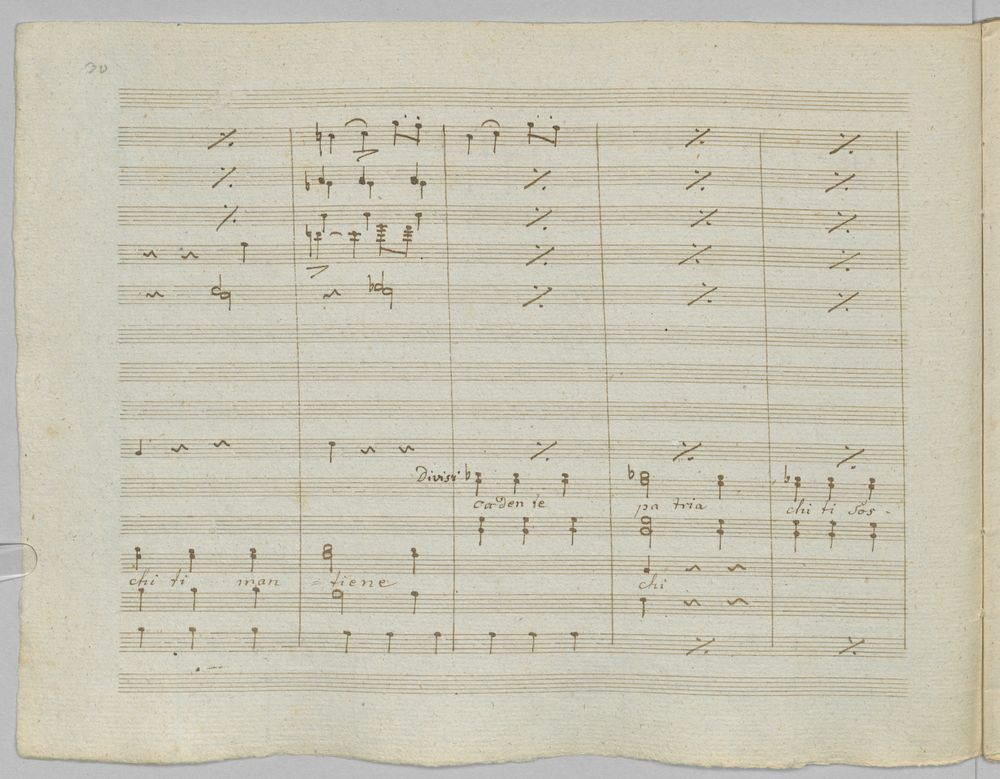 30
Divisi
cadente
pa tria
chi ti sos-
chi ti man = tiene
chi